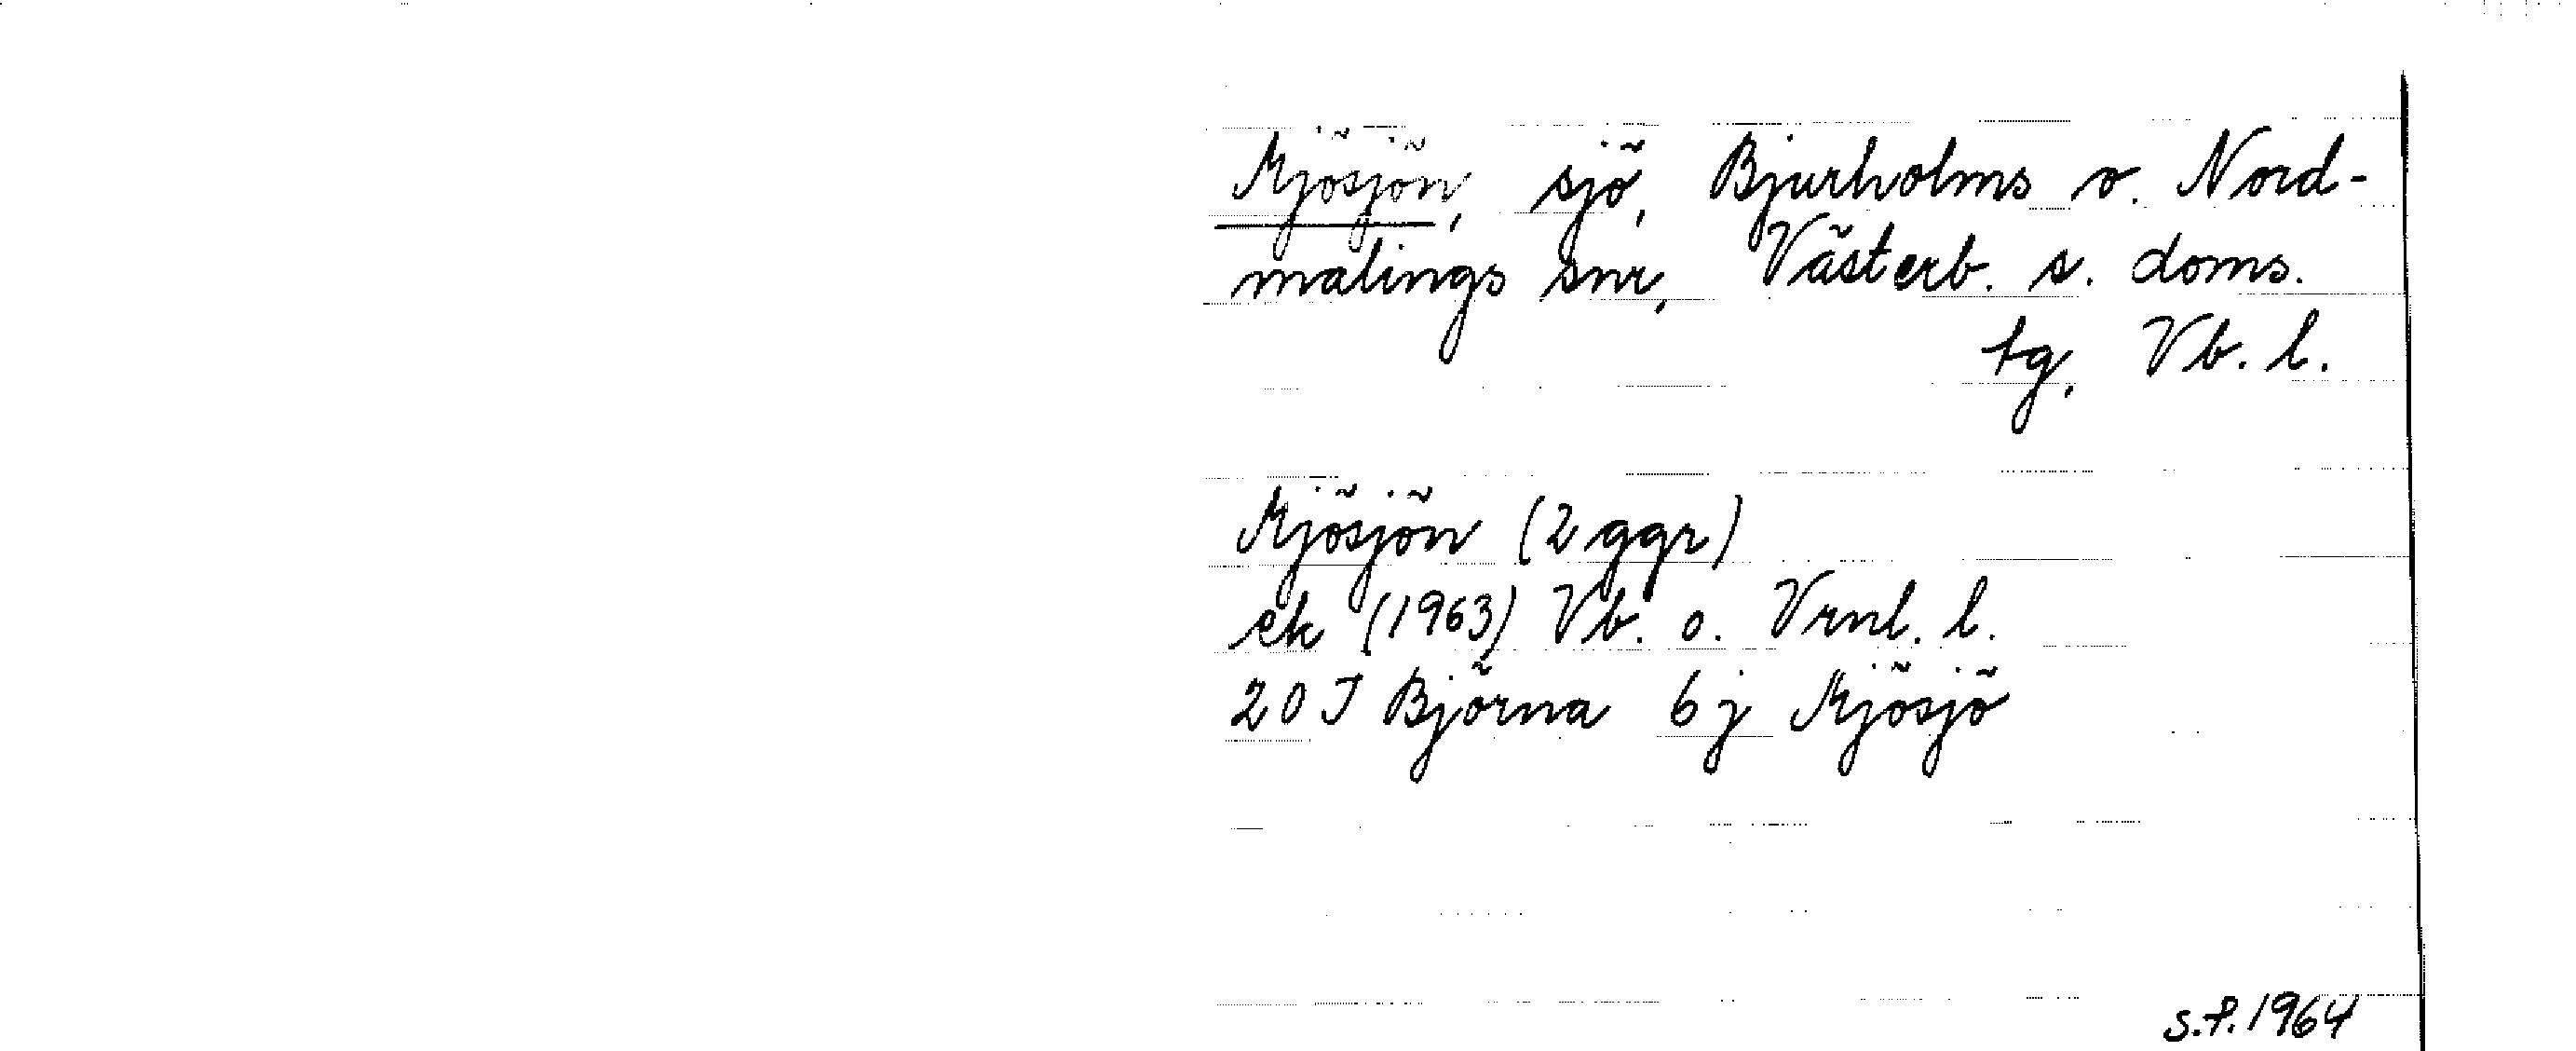 Mjösjön, sjö, Bjurholms o. Nord-
malings snr, Västerb. s. doms.
tg, Vb. l.
Mjösjön (2 ggr)
ek (1963) Vb. o. Vrnl. l.
20 J Björna 6 j Mjösjö
S.F. 1964